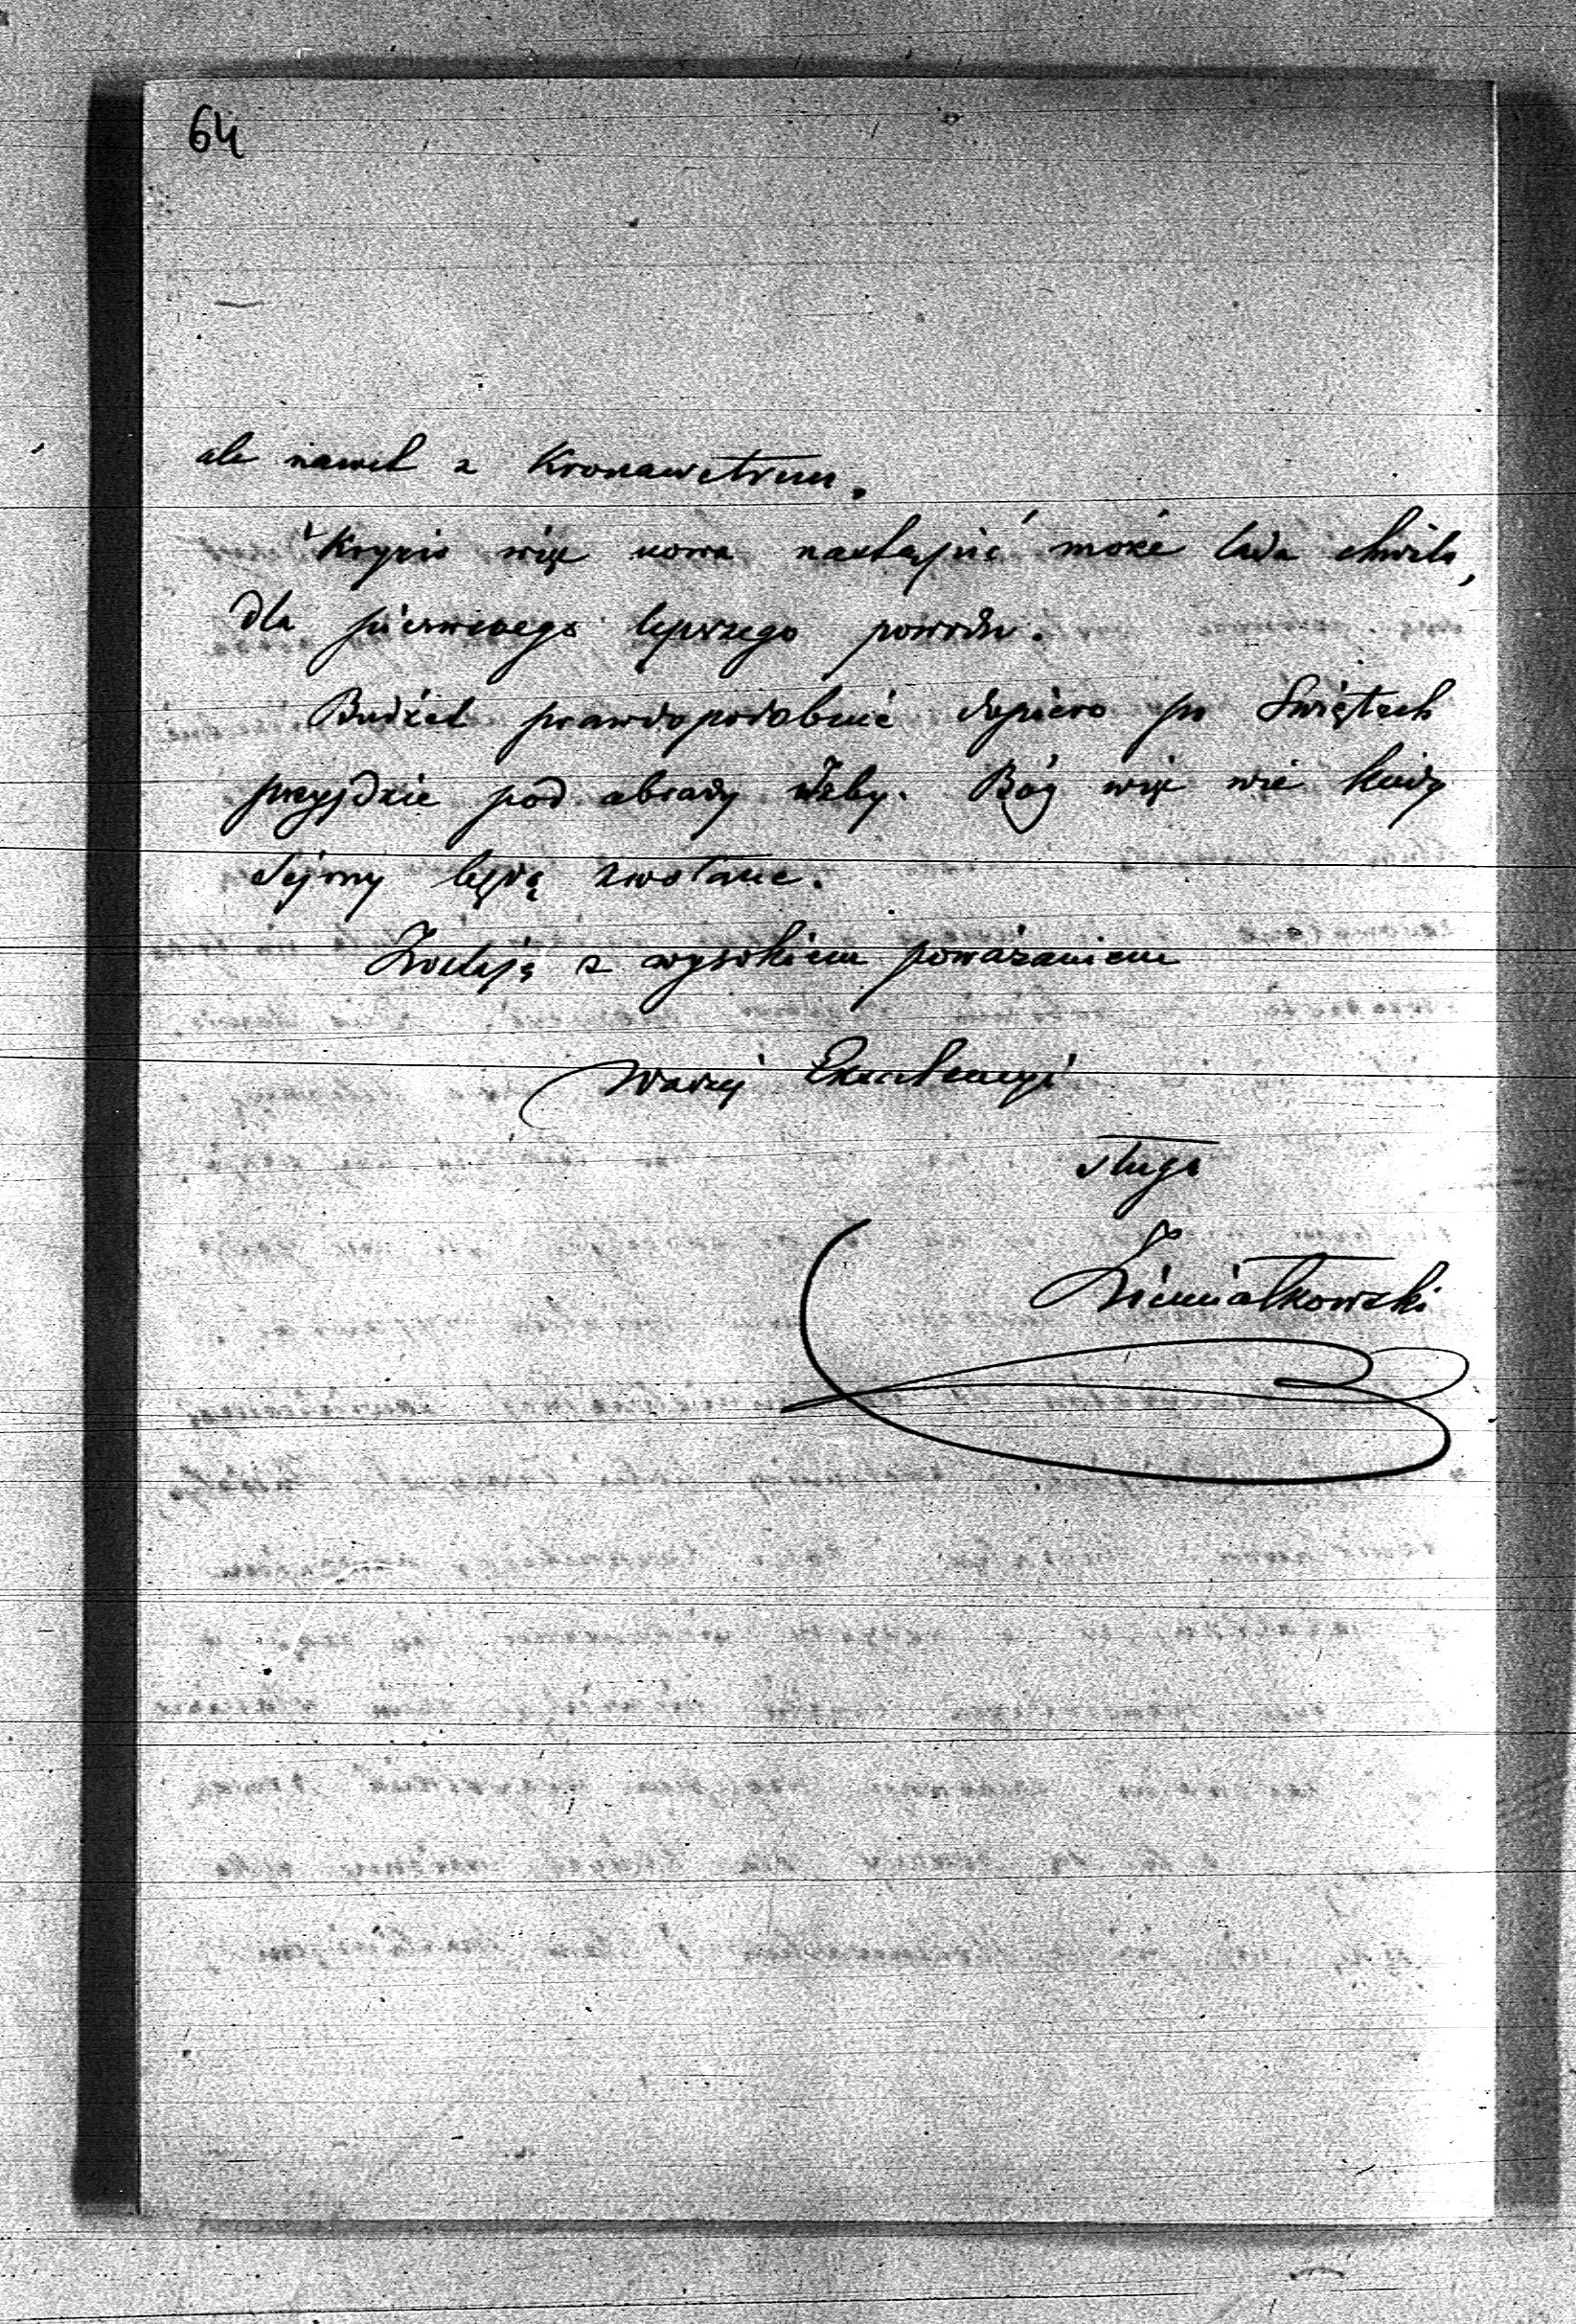 64
ale nawet z Kronawetrem.
Kryzis więc nowa nastąpić może lada chwila,
dla pierwszego lepszego powodu.
Budżet prawdopodobnie dopiero po Świętach
przyjdzie pod obrady Izby. Bóg więc wie kiedy
Sejmy będą zwołane.
Zostaję z wysokiem poważaniem
Waszej Excelencyi
sługa
Ziemiałkowski